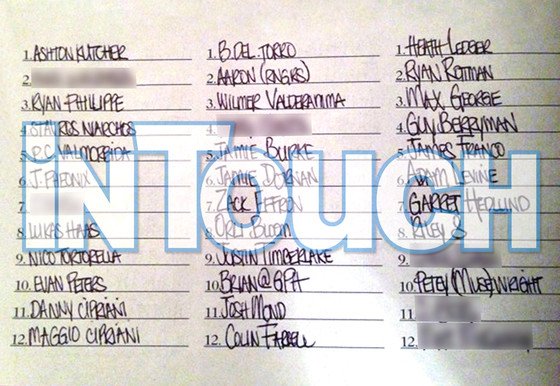 1. ASHTON KUTCHER
2.
3. RYAN PHILIPPE
4. STAVROS NIARCHOS
5. P.C. VALMORBIDA
6. J. PHEONIX
7.
8. LUKAS HAAS
9. NICO TORTORELLA
10. EVAN PETERS
11. DANNY CIPRIANI
12. MAGGIO CIPRIANI
1. B. DEL TORRO
2. AARON (RNGRS)
3. WILMER VALDERAMMA
4.
5. JAMIE BOURKE
6. JAMIE DORNAN
7. ZACK EFFRON
8. ORLI BLOOM
9. JUSTIN TIMBERLAKE
10. BRIAN @ GPH
11. JOSH MOND
12. COLIN FARRELL
1. HEATH LEDGER
2. RYAN ROTTMAN
3. MAX GEORGE
4. GUY BERRYMAN
5. JAMES FRANCO
6. ADAM LEVINE
7. GARRET HEDLUND
8. RILEY S
9.
10. PETEY (MUSE) WRIGHT
11.
12.
iNTOUCH